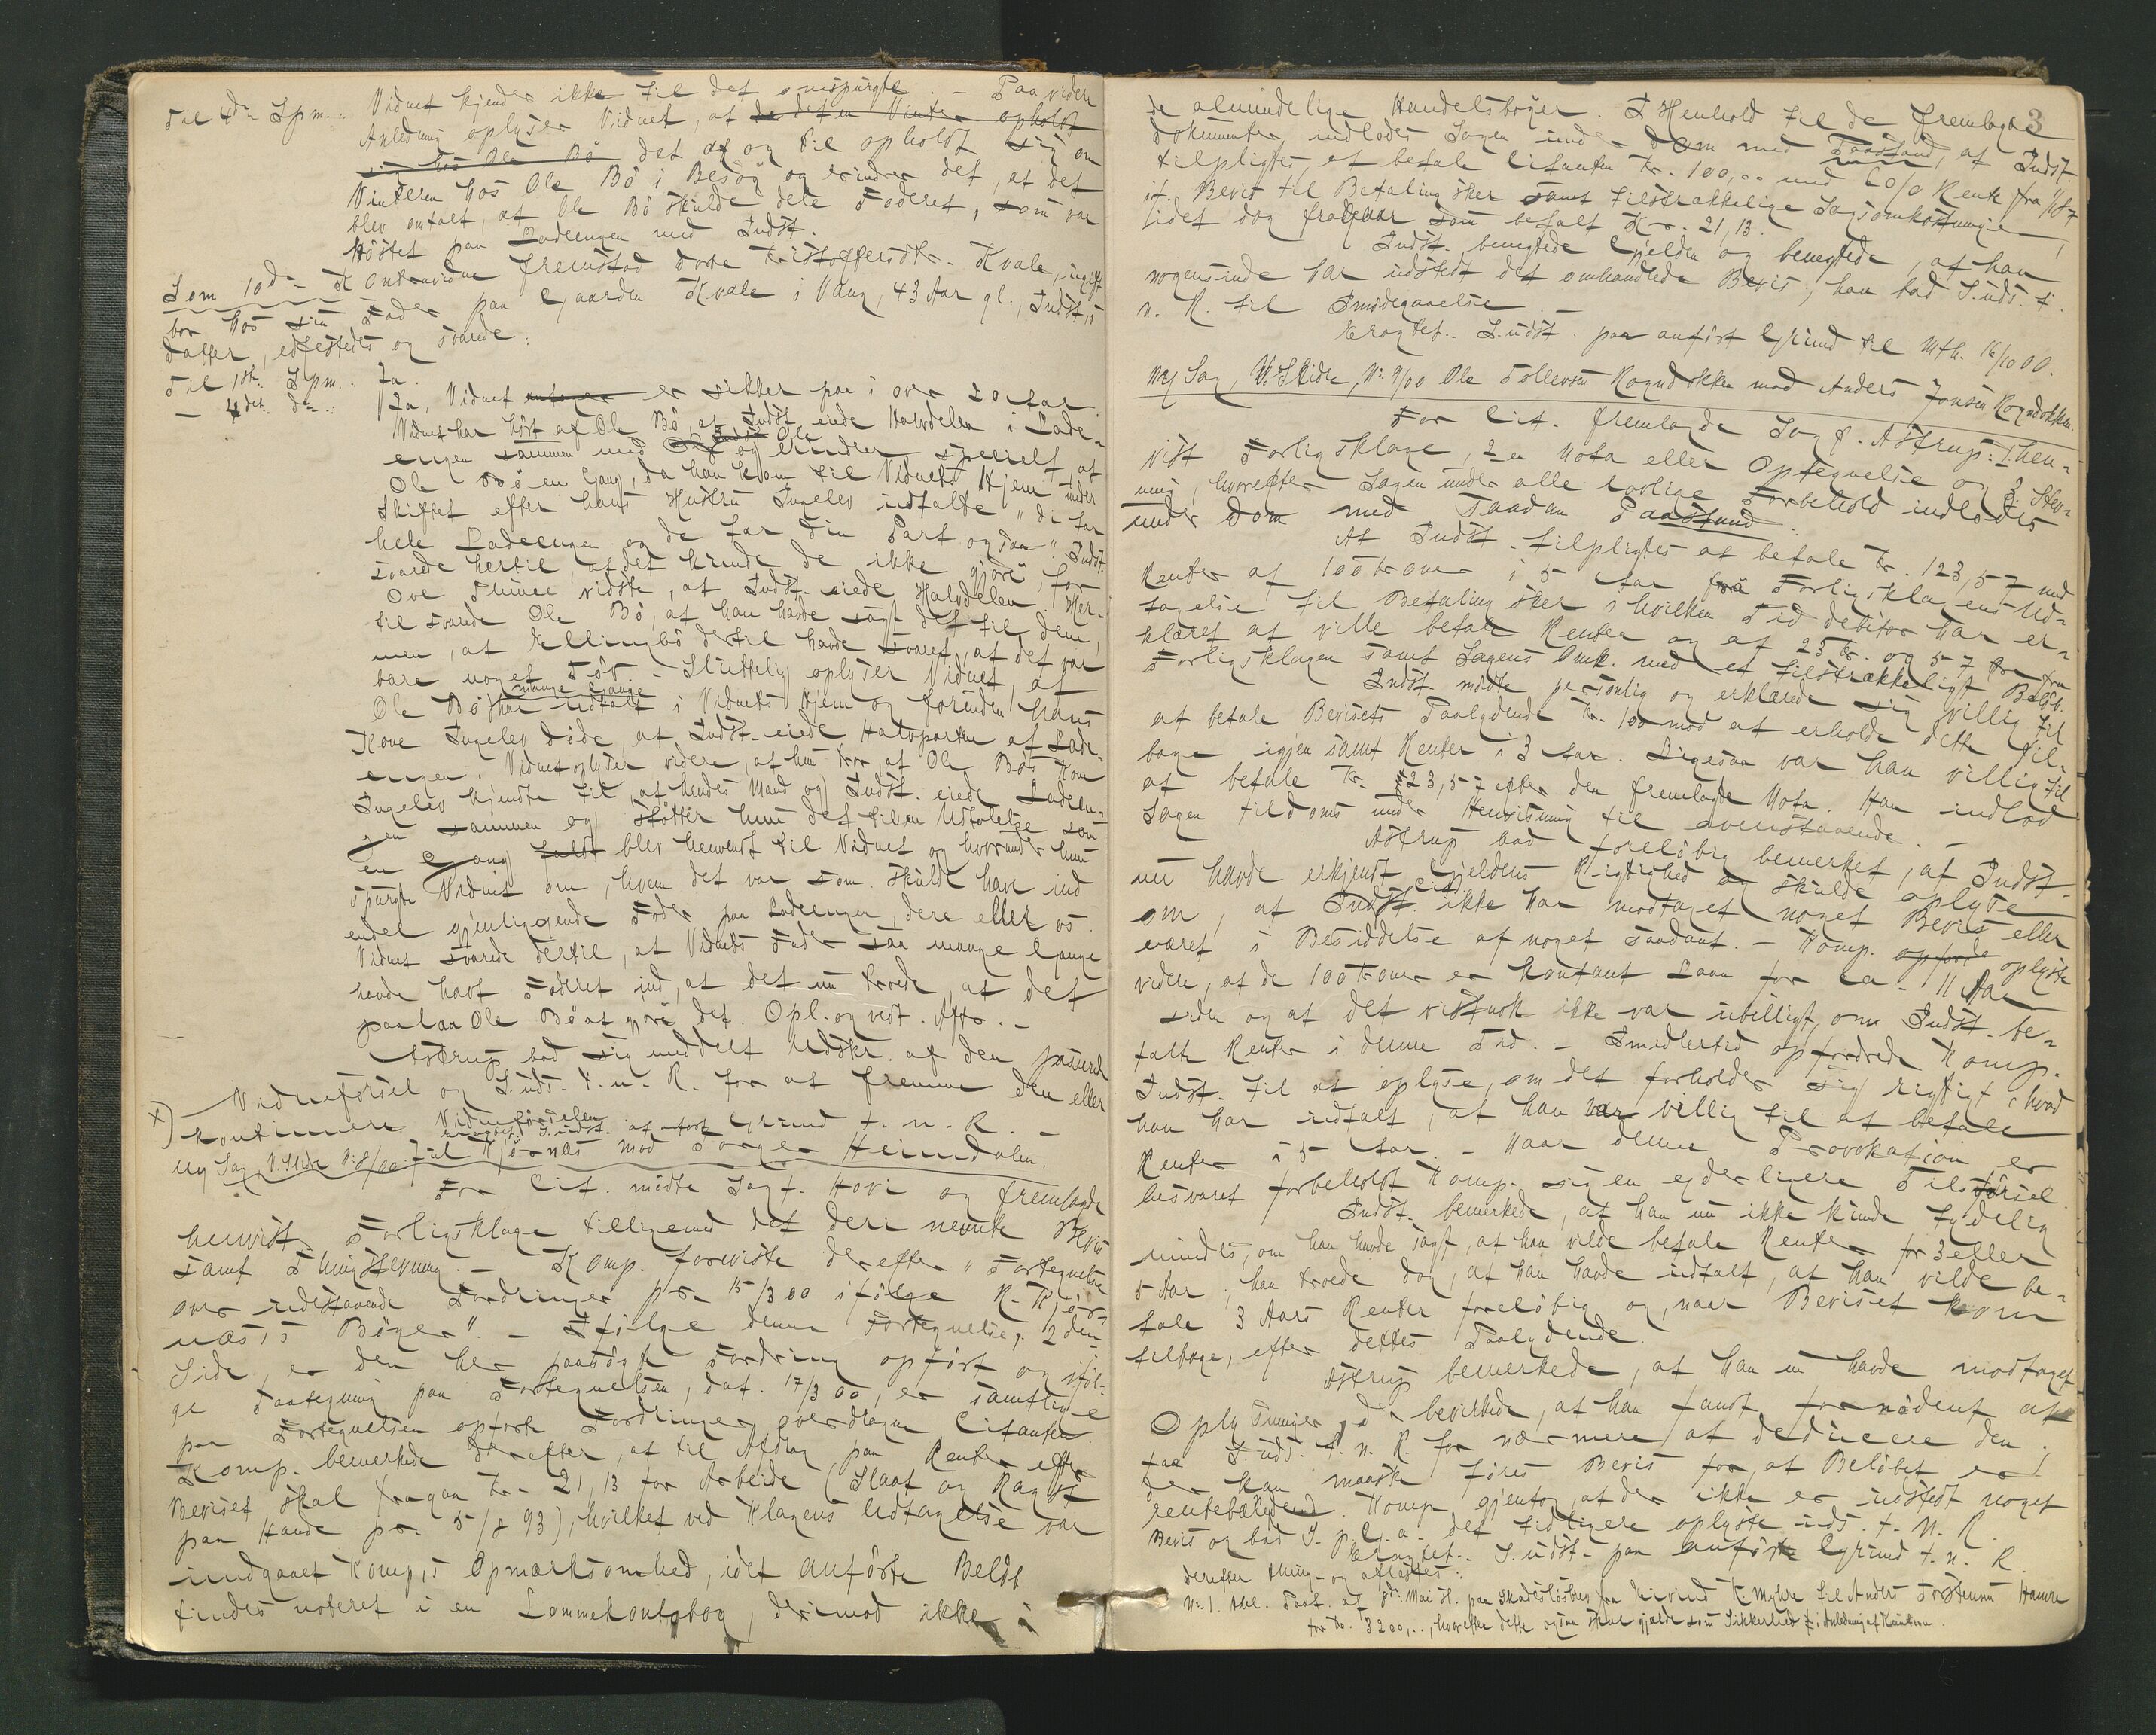 Til 4de Spm.: Vidnet kjender ikke til det omspurgte. - Paa videre
Anledning oplyser Vidnet, at de det en Vinter opholdt
sig hos Ole Bö det af og til opholdt sig om
Vinteren hos Ole Bö i Besög og erindrer det, at det
blev omtalt, at Ole Bö skulde dele Foderet, som var
Höstet paa Ladeengen med Indst.
Som 10de Kontravidne fremstod Kristoffersdtr. Kvale, ugift
bor hos sin Fader paa Gaarden Kvale i Vang, 43 Aar gl., Indst.s
datter, edfæstedes og svarede:
Til 1ste Spm.: Ja.
- 4det do.: Ja, Vidnet antager er sikker paa i over 20 Aar.
Vidnet har hört af Ole Bö, at Indst. eiede Halvdelen i Lade-
engen sammen med Ole og erindrer specielt, at
Ole Bö en Gang, da han kom til Vidnets Hjem under
Skiftet efter hans Hustru Ingelev udtalte "di tar
hele Ladeengen og de tar din Part ogsaa". Indst.
svarede hertil, at det kunde de ikke gjöre, for
Ove vidste, at Indst. eiede Halvdelen. Her-
til svarede Ole Bö, at han havde sagt det til dem,
men, at Ellingbö dertil havde svaret, at det var
bare noget Töv. - Sluttelig oplyser Vidnet, at
Ole Bö har mange Gange udtalt i Vidnets Hjem og forinden hans
Kone Ingelev döde, at Indst. eiede Halvparten af Lade-
engen. Vidnet oplyser videre, at hun tror, at Ole Bös Kone
Ingelev kjendte til, at hendes Mand og Indst. eiede Ladeen-
gen sammen og stötter hun det til en Udtalelse som
en Gang faldt blev henvendt til Vidnet og hvorunder hun
spurgte Vidnet om, hvem det var som skulde have ind
endel gjenliggende Foder paa Ladeengen, dere eller os.
Vidnet svarede dertil, at Vidnets Fader saa mange Gange
havde havt Foderet ind, at det nu troede, at det
paalaa Ole Bö at gjöre det. Opl. og vedt. Aftr. -
Astrup bad sig meddelt Udskr. af den passerede
Vidneförsel og S. uds. t. n. R. for at fremme den eller
x) kontinuere Vidneförselen
S. udst. af anfört Grund t. n. R. -
Ny Sag, V. Slidre No 8/00: Kjörnæs mod Törger Heimdalen.
For Cit. mödte Sagf. Hovi og fremlagde
henvist Forligsklage tilligemed det deri nævnte Bevis
samt Thingstevning. - Komp. foreviste derefter "Fortegnelse
over udestaaende Fordringer pr. 15/3 00 ifölge K. Kjör-
næs's Böger". - Ifölge denne Fortegnelse, 2den
Side, er den her paasögte Fordring opfört og iföl-
ge Paategning paa Fortegnelsen, dat. 17/3 00, er samtlige
paa Fortegnelsen opförte Fordringer overdragne Citanten.
Komp. bemerkede derefter, at til Afdrag paa Renter efter
Beviset skal fragaa Kr. 21,13 for Arbeide (Slaat og Ragst
paa Hande pr. 5/8 93), hvilket ved Klagens Udtagelse var
undgaaet Komp.s Opmærksomhed, idet anförte Belöb
findes noteret i en Lommekontobog, derimod ikke i
3
de almindelige Handelsböger. I Henhold til de fremlagte
Dokumenter indlodes Sagen under Dom med Paastand, at Indst.
tilpligtes at betale Citanten Kr. 100,.. med 6 o/o Rente fra
if. Bevis til Betaling sker samt tilstrækkelige Sagsomkostninger,
idet dog fradrar som betalt Kr. 21,13.
Indst. benegtede Gjælden og benegtede, at han
nogensinde har udstedt det omhandlede Bevis; han bad S. uds. t.
n. R. til Imödegaaelse. -
Eragtet. S. udst. paa anfört Grund til Mth. 16/10 00.
Ny Sag, V. Slidre, No 9/00 Ole Tollevsen Rogndokken mod Anders Jonsen Rogndokken.
For Cit. fremlagde Sagf. Astrup: 1. hen-
vist Forligsklage, 2 en Nota eller Optegnelse og 3. Stev-
ning, hvorefter Sagen under alle lovlige Forbehold indlodes
under Dom med saadan Paastand:
At Indst. tilpligtes at betale Kr. 123,57 med
Renter af 100 Kroner i 5 Aar fra Forligsklagens Ud-
tagelse til Betaling sker i hvilken Tid debitor har er-
klæret at ville betale Renter og af 23 Kr. og 57 Øre fra
Forligsklagen samt Sagens Omk. med et tilstrækkeligt Belöb.
Indst. mödte personlig og erklærede sig villig til
at betale Bevisets Paalydende Kr. 100 mod at erholde dette til-
bage igjen samt Renter i 3 Aar. Ligesaa var han villig til
at betale Kr. 23,57 efter den fremlagte Nota. Han indlod
Sagen til doms under Henvisning til ovenstaaende. -
Astrup bad foreløbig bemerket, at Indst.
nu havde erkjendt Gjældens Rigtighed og skulde oplyse
om, at Indst. Cit. ikke har modtaget noget Bevis eller
været i Besiddelse af noget saadant. - Komp. opford oplyste
videre, at de 100 Kroner er kontant Laan for ca. 11 Aar
siden og at det vistnok ikke var ubilligt, om Indst. be-
talte Renter i denne Tid. - Imidlertid opfordrede Komp.
Indst. til at oplyse, om det forholder sig rigtigt, hvad
han har udtalt, at han var villig til at betale
Renter i 5 Aar. - Naar denne Provokation er
besvaret forbeholdt Komp. sig en yderligere Tilförsel.
Indst. bemerkede, at han nu ikke kunde tydelig
mindes, om han havde sagt, at han vilde betale Renter for 3 eller
5 Aar; han troede dog, at han havde udtalt, at han vilde be-
tale 3 Aars Renter foreløbig og, naar Beviset kom
tilbage, efter dettes Paalydende.
Astrup bemerkede, at han nu havde modtaget
Oplysninger, der bevirkede, at han fandt fornödent at
faa S. uds. t. n. R. for nærmere at deducere den;
der kan maaske föres Bevis for, at Belöbet er
rentebærende. Komp. gjentog, at der ikke er udstedt noget
Bevis og bad S. p. G. a. det tidligere oplyste uds. t. N. R.
Eragtet. S. udst. paa anförte Grund t. n. R.
Derefter thing- og aflæstes:
No 1. Paat. af 8de Mai d.. paa Skadeslösbrev fra Eivind K. Myhre til Anders Torstensen Hamre
for Kr. 3200,.., hvorefter dette ogsaa skal gjælde som Sikkerhed i Anledning af Kaution.